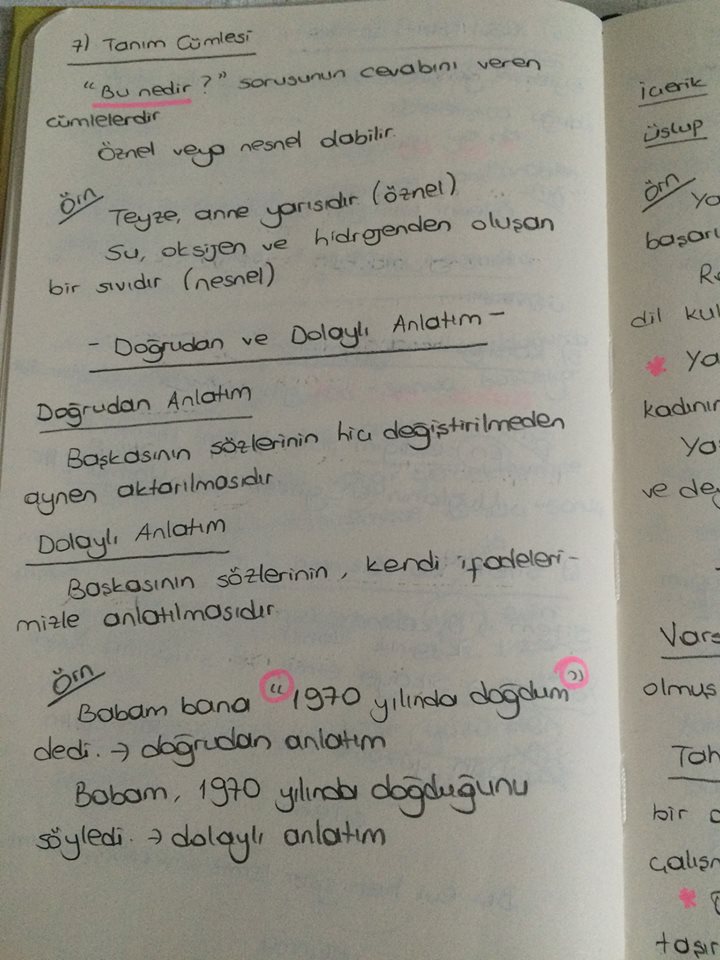 7) Tanım Cümlesi
"Bu nedir?" sorusunun cevabını veren
cümlelerdir
Öznel veya nesnel olabilir.
Örn
Teyze, anne yarısıdır (öznel)
Su, oksijen ve hidrojenden oluşan
bir sıvıdır (nesnel)
- Doğrudan ve Dolaylı Anlatım -
Doğrudan Anlatım
Başkasının sözlerinin hiç değiştirilmeden
aynen aktarılmasıdır
Dolaylı Anlatım
Başkasının sözlerinin, kendi ifadeleri-
mizle anlatılmasıdır
Örn
Babam bana "1970 yılında doğdum"
dedi. → doğrudan anlatım
Babam, 1970 yılında doğduğunu
söyledi. → dolaylı anlatım
içerik
üslup
Örn
dil
kadının
ve
olmuş
bir
taşır